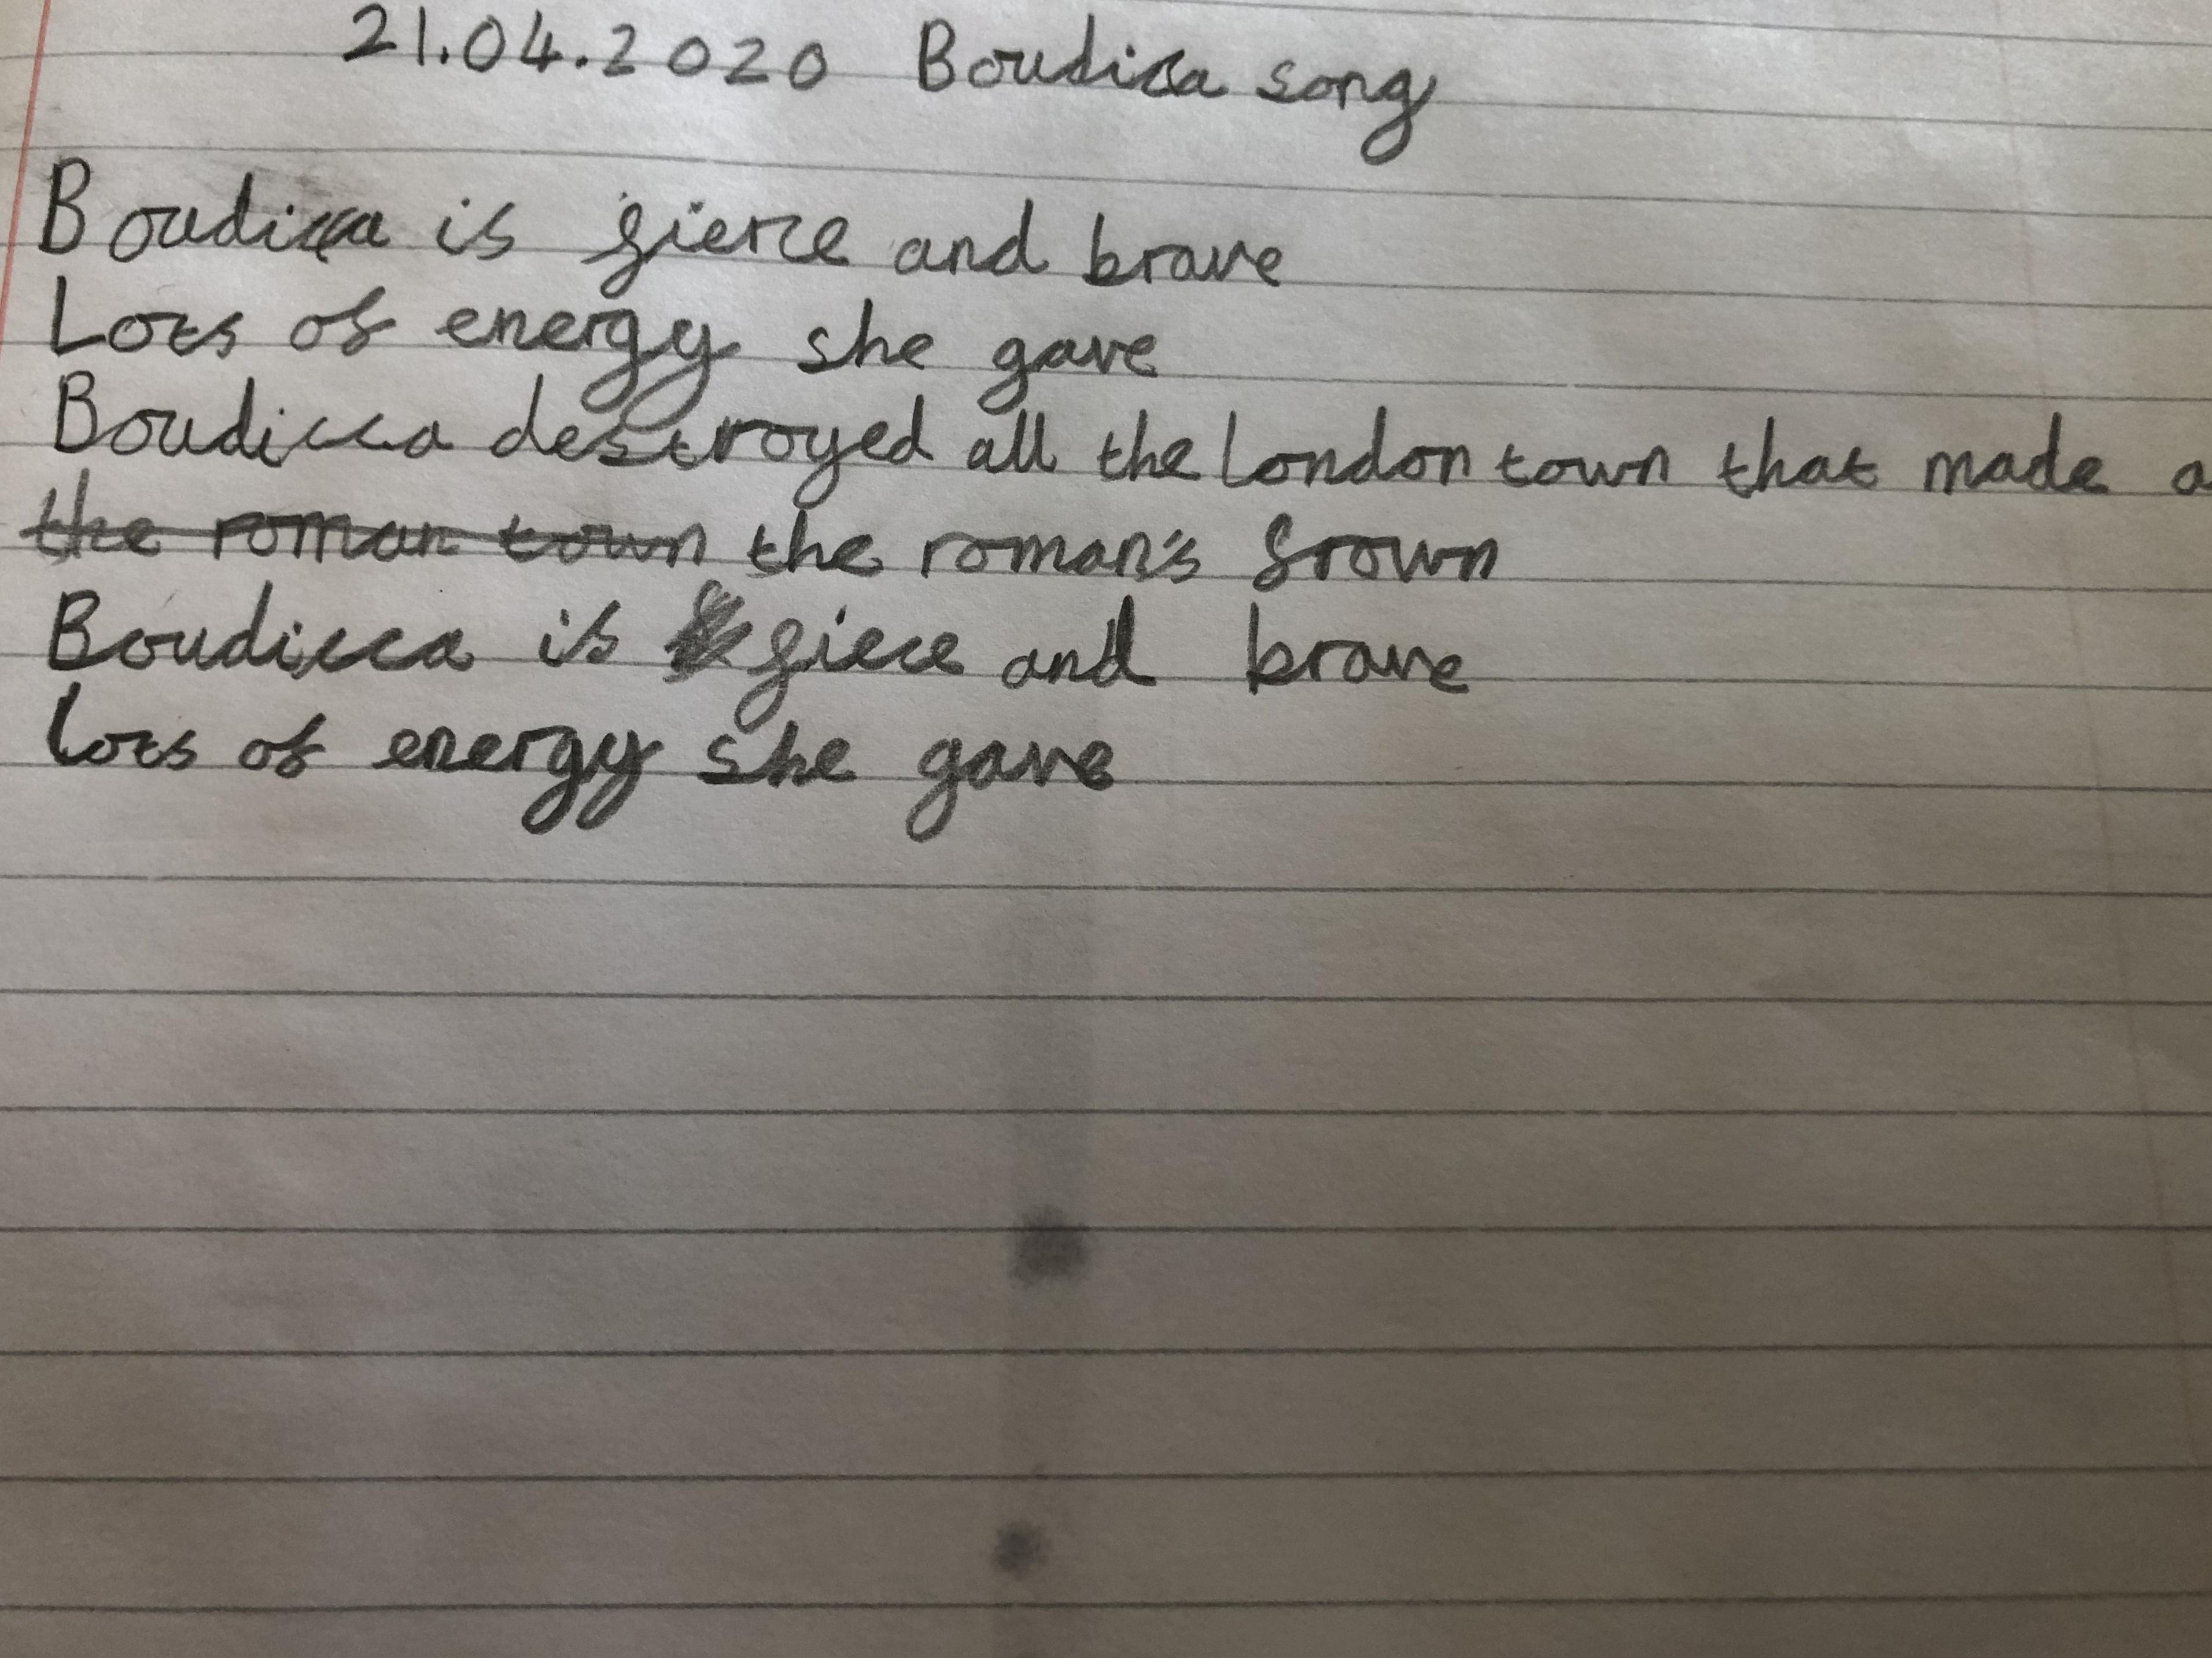 21.04.2020 Boudicca song
Boudicca is fierce and brave
Lots of energy she gave
Boudicca destroyed all the London town that made
the roman town the roman's frown
Boudicca is fiece and brave
lots of energy she gave